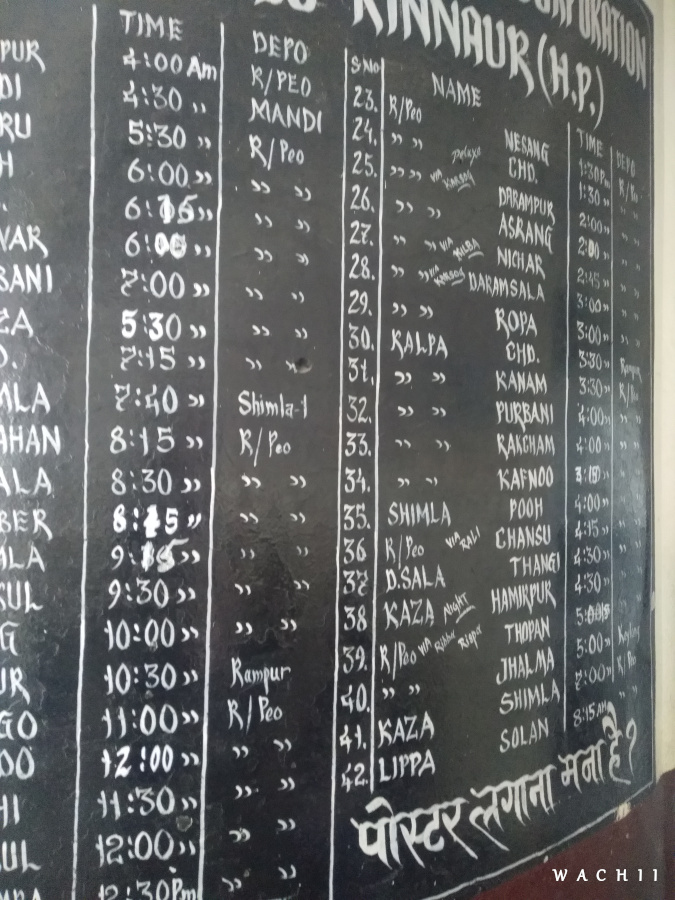 CORPORATION
KINNAUR (H.P.)
TIME DEPO
PUR 4:00 Am R/PEO
DI 4:30 ,, MANDI
RU 5:30 ,, R/Peo
H 6:00 ,, ,, ,,
6:15 ,, ,, ,,
VAR 6:00 ,, ,, ,,
SANI 7:00 ,, ,, ,,
ZA 5:30 ,, ,, ,,
D. 7:15 ,, ,, ,,
MLA 7:40 ,, Shimla-1
AHAN 8:15 ,, R/Peo
ALA 8:30 ,, ,, ,,
BER 8:45 ,, ,, ,,
MLA 9:15 ,, ,, ,,
SUL 9:30 ,, ,, ,,
G 10:00 ,, ,, ,,
UR 10:30 ,, Rampur
GO 11:00 ,, R/Peo
DO 12:00 ,, ,, ,,
HI 11:30 ,, ,, ,,
UL 12:00 ,, ,, ,,
12:30 Pm ,, ,,
S.No NAME TIME DEPO
23. R/Peo NESANG 1:30 Pm R/Peo
24. ,, ,, Deluxe CHD. 1:30 ,, ,, ,,
25. ,, ,, VIA KARSOG DARAMPUR 2:00 ,, ,, ,,
26. ,, ,, ASRANG 2:00 ,, ,, ,,
27. ,, ,, VIA KILBA NICHAR 2:45 ,, ,, ,,
28. ,, ,, VIA KARSOG DARAMSALA 3:00 ,, ,, ,,
29. ,, ,, ROPA 3:00 ,, ,, ,,
30. KALPA CHD. 3:30 ,, Rampur
31. ,, ,, KANAM 3:30 ,, R/Peo
32. ,, ,, PURBANI 4:00 ,, ,, ,,
33. ,, ,, RAKCHAM 4:00 ,, ,, ,,
34. ,, ,, KAFNOO ,, ,,
35. SHIMLA POOH 4:00 ,, ,, ,,
36 R/Peo VIA RALI CHANSU 4:15 ,, ,, ,,
37 D.SALA THANGI 4:30 ,, ,, ,,
38 KAZA Night HAMIRPUR 4:30 ,, ,, ,,
39. R/Peo VIA Ribba THOPAN ,, ,,
40. ,, ,, JHALMA 5:00 ,, Keylong
41. KAZA SHIMLA 7:00 ,, R/Peo
42. LIPPA SOLAN 8:15 AM ,, ,,
पोस्टर लगाना मना है ?
WACHII